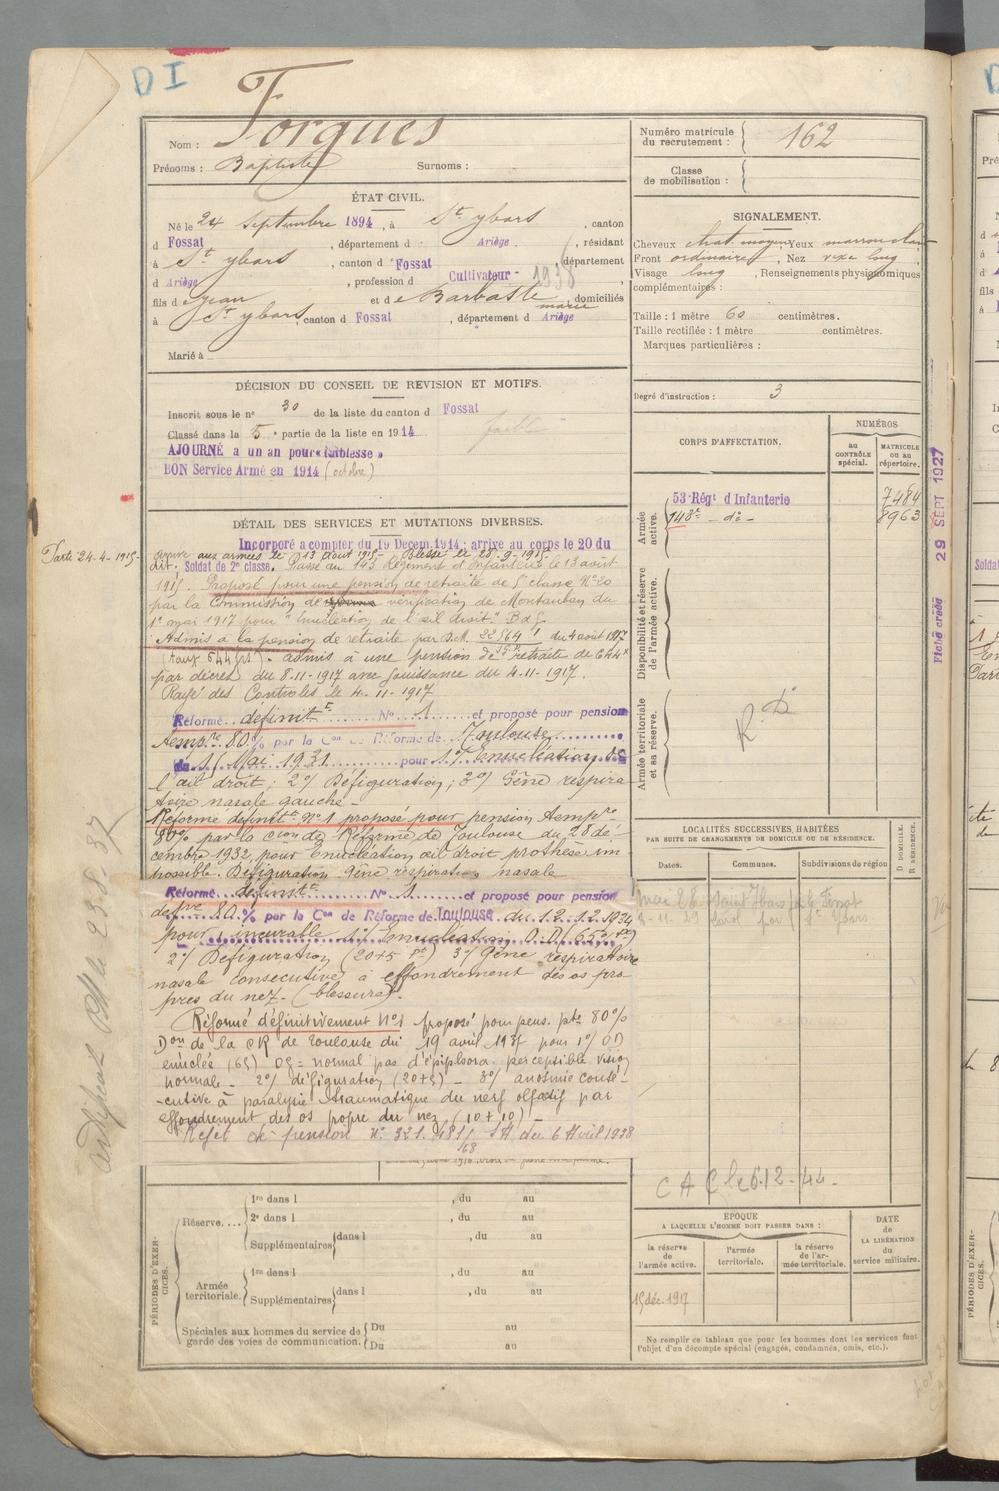 D I
Nom : Forgues
Prénoms : Baptiste Surnoms :
ÉTAT CIVIL.
Né le 24 Septembre 1894, à St ybars, canton
d Fossat, département d Ariège, résidant
à St ybars, canton d Fossat, département
d Ariège, profession d Cultivateur 1938
fils de jean et de Barbaste marie, domiciliés
à St ybars, canton d Fossat, département d Ariège
Marié à
DÉCISION DU CONSEIL DE REVISION ET MOTIFS.
Inscrit sous le n° 30 de la liste du canton d Fossat
Classé dans la 5e partie de la liste en 1914 faible
AJOURNÉ à un an pour « faiblesse »
BON Service Armé en 1914 (octobre)
DÉTAIL DES SERVICES ET MUTATIONS DIVERSES.
Incorporé a compter du 19 Decem. 1914 ; arrive au corps le 20 du
Parti 24-4-1915- arrivé aux armées le 13 août 1915- Blessé le 25-9-1915
dit. Soldat de 2e classe. Passé au 143 Régiment d'Infanterie le 13 août
1915. Proposé pour une pension de retraite de 5e classe N° 20
par la Commission de réforme vérification de Montauban du
1er mai 1917 pour "Enucléation de l'œil droit." B.d.G.
Admis à la pension de retraite par D.M. 22564 du 4 août 1917
(Tauf 644 frs). admis à une pension de retraite de 644f
par décret du 8-11-1917 avec jouissance du 4-11-1917.
Rayé des Controles le 4-11-1917
Réformé définitt N° 1 et proposé pour pension
temp.re 80 % par la Con de Réforme de Toulouse
du 11 Mai 1931 pour 1°/ Enucléation de
l'œil droit ; 2°/ Défiguration ; 3°/ Gêne respira
toire nasale gauche -
Réforme definitte N° 1 proposé pour pension temp.re
80% par la cion de Réforme de Toulouse du 28 dé-
cembre 1932, pour Enucléation œil droit prothèse im
possible. Défiguration. Gêne respiration nasale
Réformé définitt N° 1 et proposé pour pension
def ve 80 % par la Con de Réforme de Toulouse du 12.12.1934
pour incurable 1°/ Enucléation O.D. (65%)
2°/ Défiguration (20+5) 3°/ Gêne respiratoire
nasale consecutive à effondrement des os pro
pres du nez. (blessure).
Réformé définitivement N°1 proposé pour pens. pte 80 %
Don de la CR de Toulouse du 19 avril 1937 pour 1°/ OD
enuclée (65) OG = normal pas d'épiphora. perceptible vision
normale - 2°/ défiguration (20+5) - 3°/ anosmie consé-
-cutive à paralysie traumatique du nerf olfactif par
effondrement des os propre du nez (10+10) -
Rejet de pension N° 321.481/ SA du 6 Avril 1938
168
le 23.8.37
PÉRIODES D'EXERCICES.
Réserve.... 1re dans l , du au
2e dans l , du au
Supplémentaires dans l , du au
Armée territoriale. 1re dans l , du au
Supplémentaires dans l , du au
Spéciales aux hommes du service de garde des voies de communication. Du au
Du au
Numéro matricule du recrutement : 162
Classe de mobilisation :
SIGNALEMENT.
Cheveux chat. moyen Yeux marron clair
Front ordinaire, Nez rexe long
Visage long, Renseignements physionomiques
complémentaires :
Taille : 1 mètre 60 centimètres.
Taille rectifiée : 1 mètre centimètres.
Marques particulières :
Degré d'instruction : 3
CORPS D'AFFECTATION.
NUMÉROS
au CONTRÔLE spécial.
MATRICULE ou au répertoire.
Armée active.
53 Régt d'Infanterie 7484
143e - do - 8963
Disponibilité et réserve de l'armée active.
Armée territoriale et sa réserve.
R. D
Fiche créée 29 SEPT 1927
LOCALITÉS SUCCESSIVES HABITÉES
PAR SUITE DE CHANGEMENTS DE DOMICILE OU DE RÉSIDENCE.
Dates. Communes. Subdivisions de région
D DOMICILE. R RÉSIDENCE.
mai 28 Saint Ybars par le Fossat
St Ybars
C A C le 6.12-44-
ÉPOQUE
A LAQUELLE L'HOMME DOIT PASSER DANS :
la réserve de l'armée active.
l'armée territoriale.
la réserve de l'armée territoriale.
DATE de LA LIBÉRATION du service militaire.
15 déc. 1917
Ne remplir ce tableau que pour les hommes dont les services font
l'objet d'un décompte spécial (engagés, condamnés, omis, etc.).